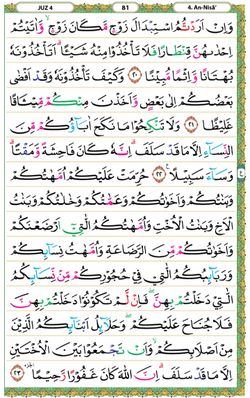 JUZ 4 81 4. An-Nisā'
وَاِنْ اَرَدْتُّمُ اسْتِبْدَالَ زَوْجٍ مَّكَانَ زَوْجٍ وَّاٰتَيْتُمْ
اِحْدٰىهُنَّ قِنْطَارًا فَلَا تَأْخُذُوْا مِنْهُ شَيْـًٔا اَتَأْخُذُوْنَهٗ
بُهْتَانًا وَّاِثْمًا مُّبِيْنًا ٢٠ وَكَيْفَ تَأْخُذُوْنَهٗ وَقَدْ اَفْضٰى
بَعْضُكُمْ اِلٰى بَعْضٍ وَّاَخَذْنَ مِنْكُمْ مِّيْثَاقًا
غَلِيْظًا ٢١ وَلَا تَنْكِحُوْا مَا نَكَحَ اٰبَاۤؤُكُمْ مِّنَ
النِّسَاۤءِ اِلَّا مَا قَدْ سَلَفَ اِنَّهٗ كَانَ فَاحِشَةً وَّمَقْتًا
وَسَاۤءَ سَبِيْلًا ٢٢ حُرِّمَتْ عَلَيْكُمْ اُمَّهٰتُكُمْ
وَبَنٰتُكُمْ وَاَخَوٰتُكُمْ وَعَمّٰتُكُمْ وَخٰلٰتُكُمْ وَبَنٰتُ
الْاَخِ وَبَنٰتُ الْاُخْتِ وَاُمَّهٰتُكُمُ الّٰتِيْٓ اَرْضَعْنَكُمْ
وَاَخَوٰتُكُمْ مِّنَ الرَّضَاعَةِ وَاُمَّهٰتُ نِسَاۤىِٕكُمْ
وَرَبَاۤىِٕبُكُمُ الّٰتِيْ فِيْ حُجُوْرِكُمْ مِّنْ نِّسَاۤىِٕكُمُ
الّٰتِيْ دَخَلْتُمْ بِهِنَّ فَاِنْ لَّمْ تَكُوْنُوْا دَخَلْتُمْ بِهِنَّ
فَلَا جُنَاحَ عَلَيْكُمْ وَحَلَاۤىِٕلُ اَبْنَاۤىِٕكُمُ الَّذِيْنَ
مِنْ اَصْلَابِكُمْ وَاَنْ تَجْمَعُوْا بَيْنَ الْاُخْتَيْنِ
اِلَّا مَا قَدْ سَلَفَ اِنَّ اللّٰهَ كَانَ غَفُوْرًا رَّحِيْمًا ٢٣